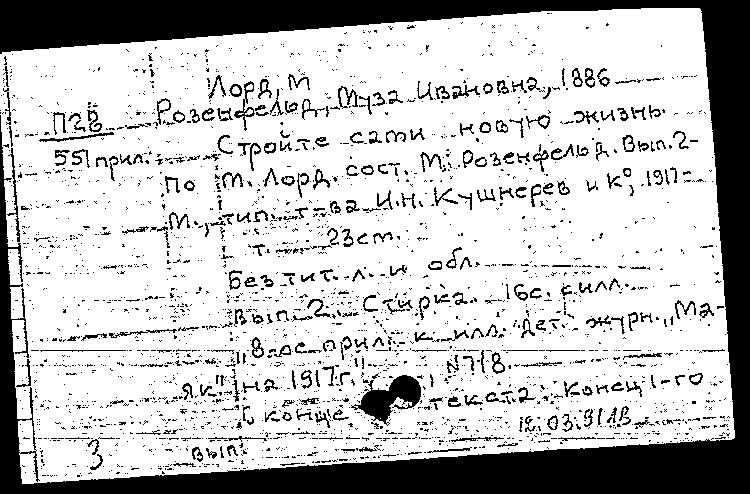 Лорд, М
П2в Розенфельд, Муза Ивановна, 1886
551 прил. Стройте сами новую жизнь.
По М. Лорд. сост. М. Розенфельд. Вып. 2-
М., тип. т-ва И.Н. Кушнерев и К°, 1917-
т. 23см.
Без тит. л. и обл.
Вып. 2. Стирка. 16с. с илл.
"8-ое прил. к илл. дет. журн. „Ма-
як" на 1917г." N 718.
В конце текста: Конец 1-го
вып.
3